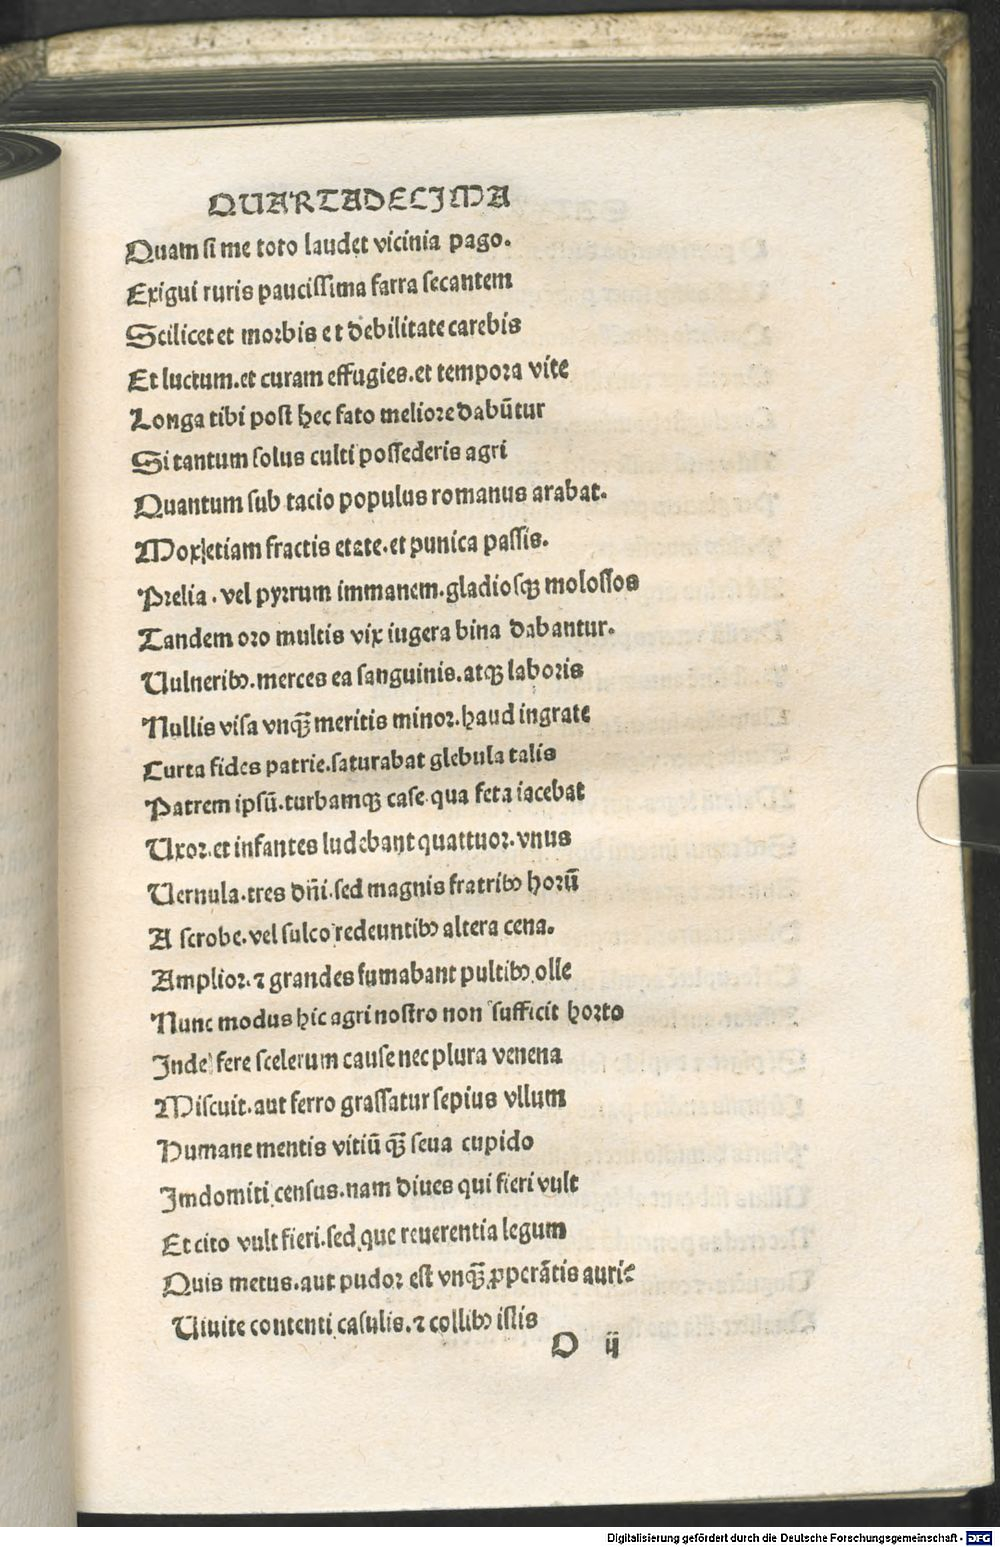 QUARTADECIMA
Quam si me toto laudet vicinia pago.
Exigui ruris paucissima farra secantem
Scilicet et morbis et debilitate carebis
Et luctum.et curam effugies.et tempora vite
Longa tibi post hec fato meliore dabūtur
Si tantum solus culti possederis agri
Quantum sub tacio populus romanus arabat.
Mox etiam fractis etate.et punica passis.
Prelia.vel pyrrum immanem.gladiosqꝫ molossos
Tandem oro multis vix iugera bina dabantur.
Uulneribꝰ.merces ea sanguinis.atqꝫ laboris
Nullis visa vnqꝫ̄ meritis minor.haud ingrate
Curta fides patrie.saturabat glebula talis
Patrem ipsū.turbamqꝫ case qua feta iacebat
Uxor.et infantes ludebant quattuor.vnus
Uernula.tres dn̄i.sed magnis fratribꝰ horū
A scrobe.vel sulco redeuntibꝰ altera cena.
Amplior.⁊ grandes fumabant pultibꝰ olle
Nunc modus hic agri nostro non sufficit horto
Inde fere scelerum cause nec plura venena
Miscuit.aut ferro grassatur sepius vllum
Humane mentis vitiū qꝫ̄ seua cupido
Imdomiti census.nam diues qui fieri vult
Et cito vult fieri.sed que reuerentia legum
Quis metus.aut pudor est vnqꝫ̄ ꝓperātis auri?
Uiuite contenti casulis.⁊ collibꝰ istis
D ij
Digitalisierung gefördert durch die Deutsche Forschungsgemeinschaft - DFG